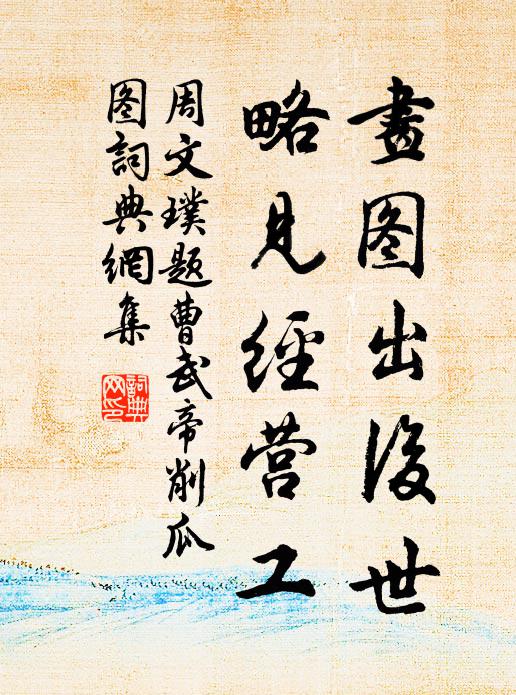 畫图出後世
略見經营工
周文璞题曹武帝削瓜
图詞典網集
詞典
网印